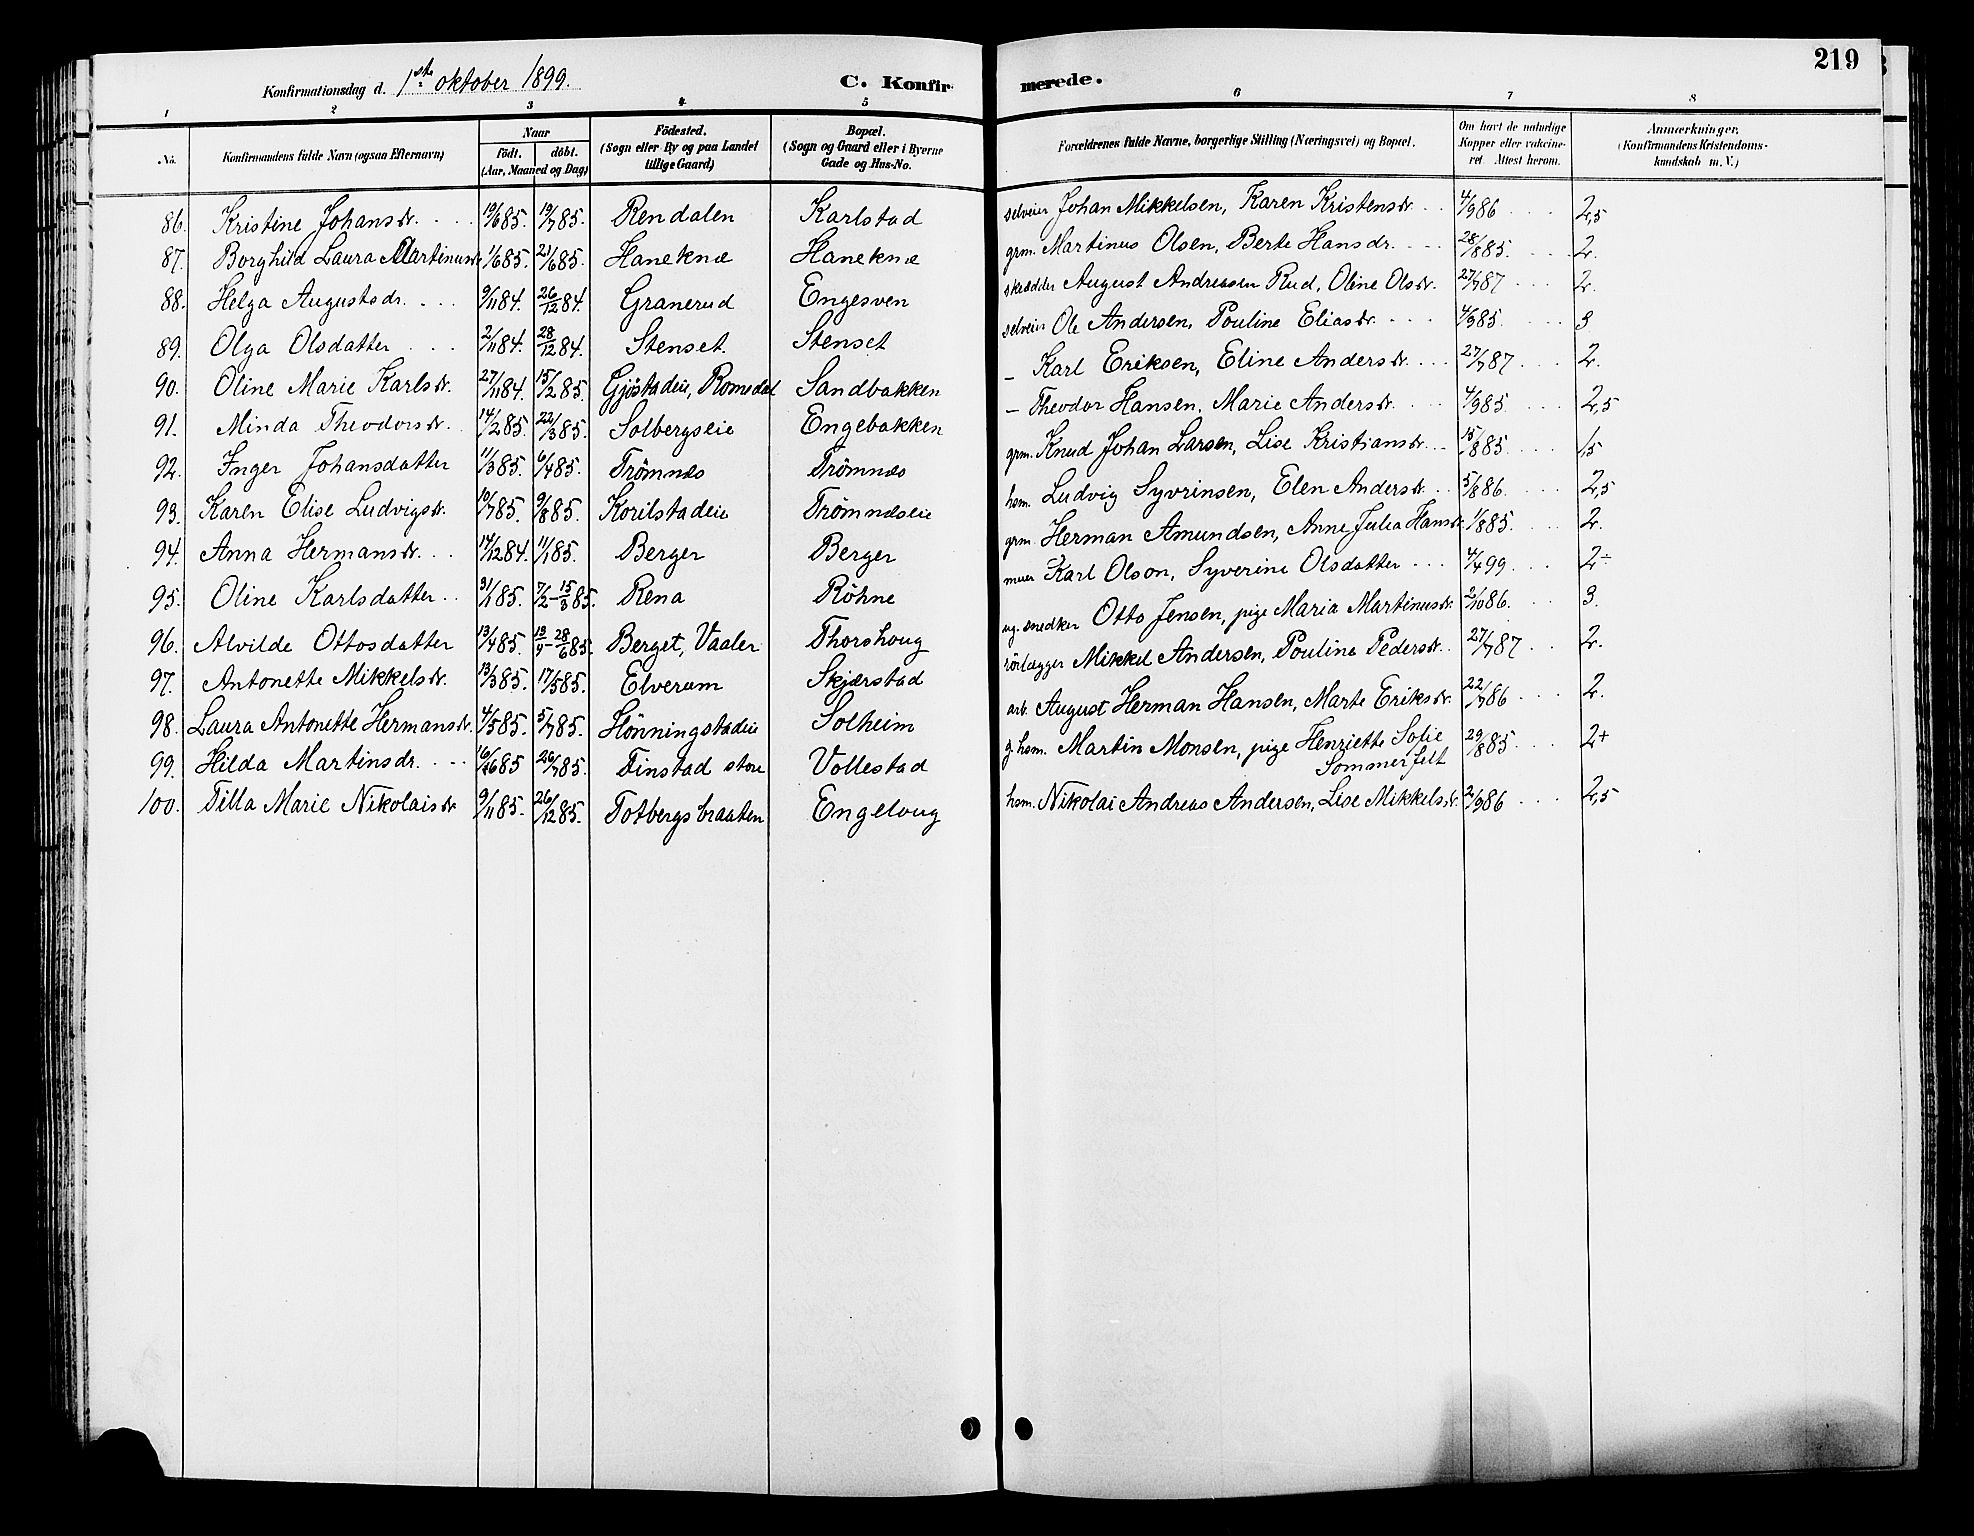 219
Konfirmationsdag d. 1ste oktober 1899. C. Konfir- merede.
1 2 3 4 5 6 7 8
No. Konfirmandens fulde Navn (ogsaa Efternavn) Naar Födt. döbt. (Aar, Maaned og Dag) Födested. (Sogn eller By og paa Landet tillige Gaard) Bopæl. (Sogn og Gaard eller i Byerne Gade og Hus-No. Forældrenes fulde Navne, borgerlige Stilling (Næringsvei) og Bopæl. Om havt de naturlige Kopper eller vakcineret. Attest herom. Anmærkninger. (Konfirmandens Kristendomskundskab m. V.)
86. Kristine Johansdr. 19/6 85. 19/7 85. Rendalen Karlstad selveier Johan Mikkelsen, Karen Kristensdr. 4/9 86 2,5
87. Borghild Laura Martinusdr. 1/6 85. 21/6 85. Haneknæ Haneknæ grm. Martinus Olsen, Berte Hansdr. 28/8 85. 2.
88. Helga Augustsdr. 9/11 84. 26/12 84. Granerud Engesven skrædder August Andreasen Rud, Oline Olsdr. 27/7 87 2.
89. Olga Olsdatter 2/11 84. 28/12 84. Stenset. Stenset selveier Ole Andersen, Pouline Eliasdr. 4/9 85. 3
90. Oline Marie Karlsdr. 27/11 84. 15/2 85. Gjöstadeie, Romedal Sandbakken – Karl Eriksen, Eline Andersdr. 27/7 87 2.
91. Minda Theodorsdr. 14/2 85. 22/3 85. Solbergseie Engebakken – Theodor Hansen, Marie Andersdr. 4/9 85. 2,5
92. Inger Johansdatter 11/3 85. 6/4 85. Trömnæs Trömnæs grm. Knud Johan Larsen, Lise Kristiansdr. 15/8 85. 1,5
93. Karen Elise Ludvigsdr. 10/7 85. 9/8 85. Korilstadeie Trömnæseie hsm. Ludvig Syvrinsen, Elen Andersdr. 5/8 86. 2,5
94. Anna Hermansdr. 14/12 84. 11/1 85. Berger Berger grm. Herman Amundsen, Anne Julia Hansdr. 1/8 85. 2.
95. Oline Karlsdatter 31/1 85. 7/2 – 15/3 85. Rena Röhne murer Karl Olson, Syverine Olsdatter 4/4 99. 2÷
96. Alvilde Ottosdatter 13/4 85. 19/4 – 28/6 85. Berget, Vaaler Thorshoug ug. snedker Otto Jensen, pige Maria Martinusdr. 2/10 86. 3.
97. Antonette Mikkelsdr. 13/3 85. 17/5 85. Elverum Skjærstad rörlægger Mikkel Andersen, Pouline Pedersdr. 27/7 87 2.
98. Laura Antonette Hermansdr. 4/5 85. 5/7 85. Hönningstadeie Solheim arb. August Herman Hansen, Marte Eriksdr. 22/7 86 2.
99. Hilda Martinsdr. 16/6 85 26/7 85. Finstad store Vollestad g. hsm. Martin Monsen, pige Henriette Sofie 29/8 85 2+
Sommerfelt
100. Tilla Marie Nikolaisdr. 9/11 85. 26/12 85. Totbergsbraaten Engeloug hsm. Nikolai Andreas Andersen, Lise Mikkelsdr. 2/9 86 2,5